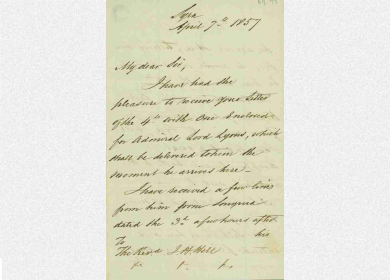 Syra
April 7th 1857
My dear Sir,
I have had the
pleasure to receive your letter
of the 4th with one enclosed
for Admiral Lord Lyons, which
shall be delivered to him the
moment he arrives here.
I have received a few lines
from him from Smyrna
dated the 3d. a few hours after
To his
The Revd. J. H. Hill